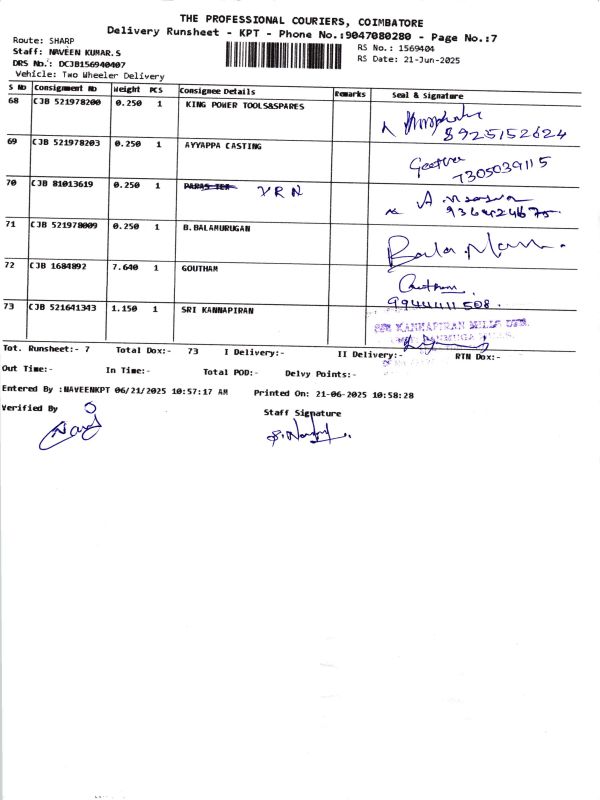 THE PROFESSIONAL COURIERS, COIMBATORE
Delivery Runsheet - KPT - Phone No.:9047080280 - Page No.:7
Route: SHARP
RS No.: 1569404
Staff: NAVEEN KUMAR.S
RS Date: 21-Jun-2025
DRS No.: DCJB156940407
Vehicle: Two Wheeler Delivery
S No Consignment No Weight PCS Consignee Details Remarks Seal & Signature
68 CJB 521978200 0.250 1 KING POWER TOOLS&SPARES
8925152624
69 CJB 521978203 0.250 1 AYYAPPA CASTING Geetha
7305039115
70 CJB 81013619 0.250 1 VRN
71 CJB 521978009 0.250 1 B.BALAMURUGAN
72 CJB 1684892 7.640 1 GOUTHAM Goutham
9944411508.
73 CJB 521641343 1.150 1 SRI KANNAPIRAN
SRI KANNAPIRAN MILLS LTD.
Tot. Runsheet:- 7 Total Dox:- 73 I Delivery:- II Delivery:- RTN Dox:-
Out Time:- In Time:- Total POD:- Delvy Points:-
Entered By :NAVEENKPT 06/21/2025 10:57:17 AM Printed On: 21-06-2025 10:58:28
Verified By Staff Signature